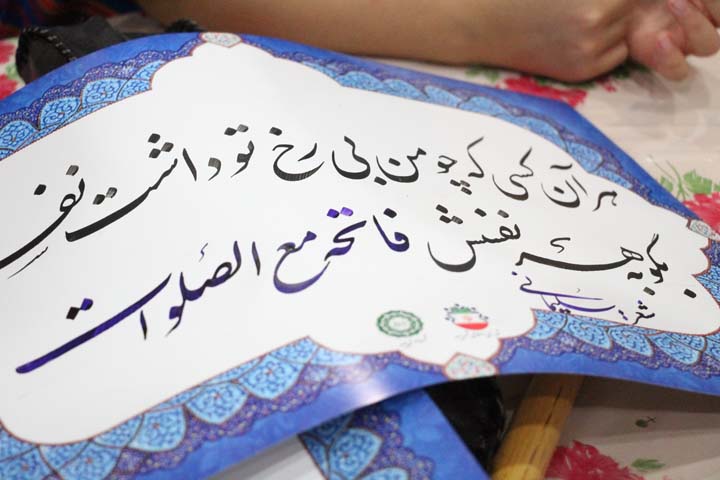 هر آن کسی که چو من بی رخ تو داشت نفس
بگو به هر نفسش فاتحه مع الصلوات